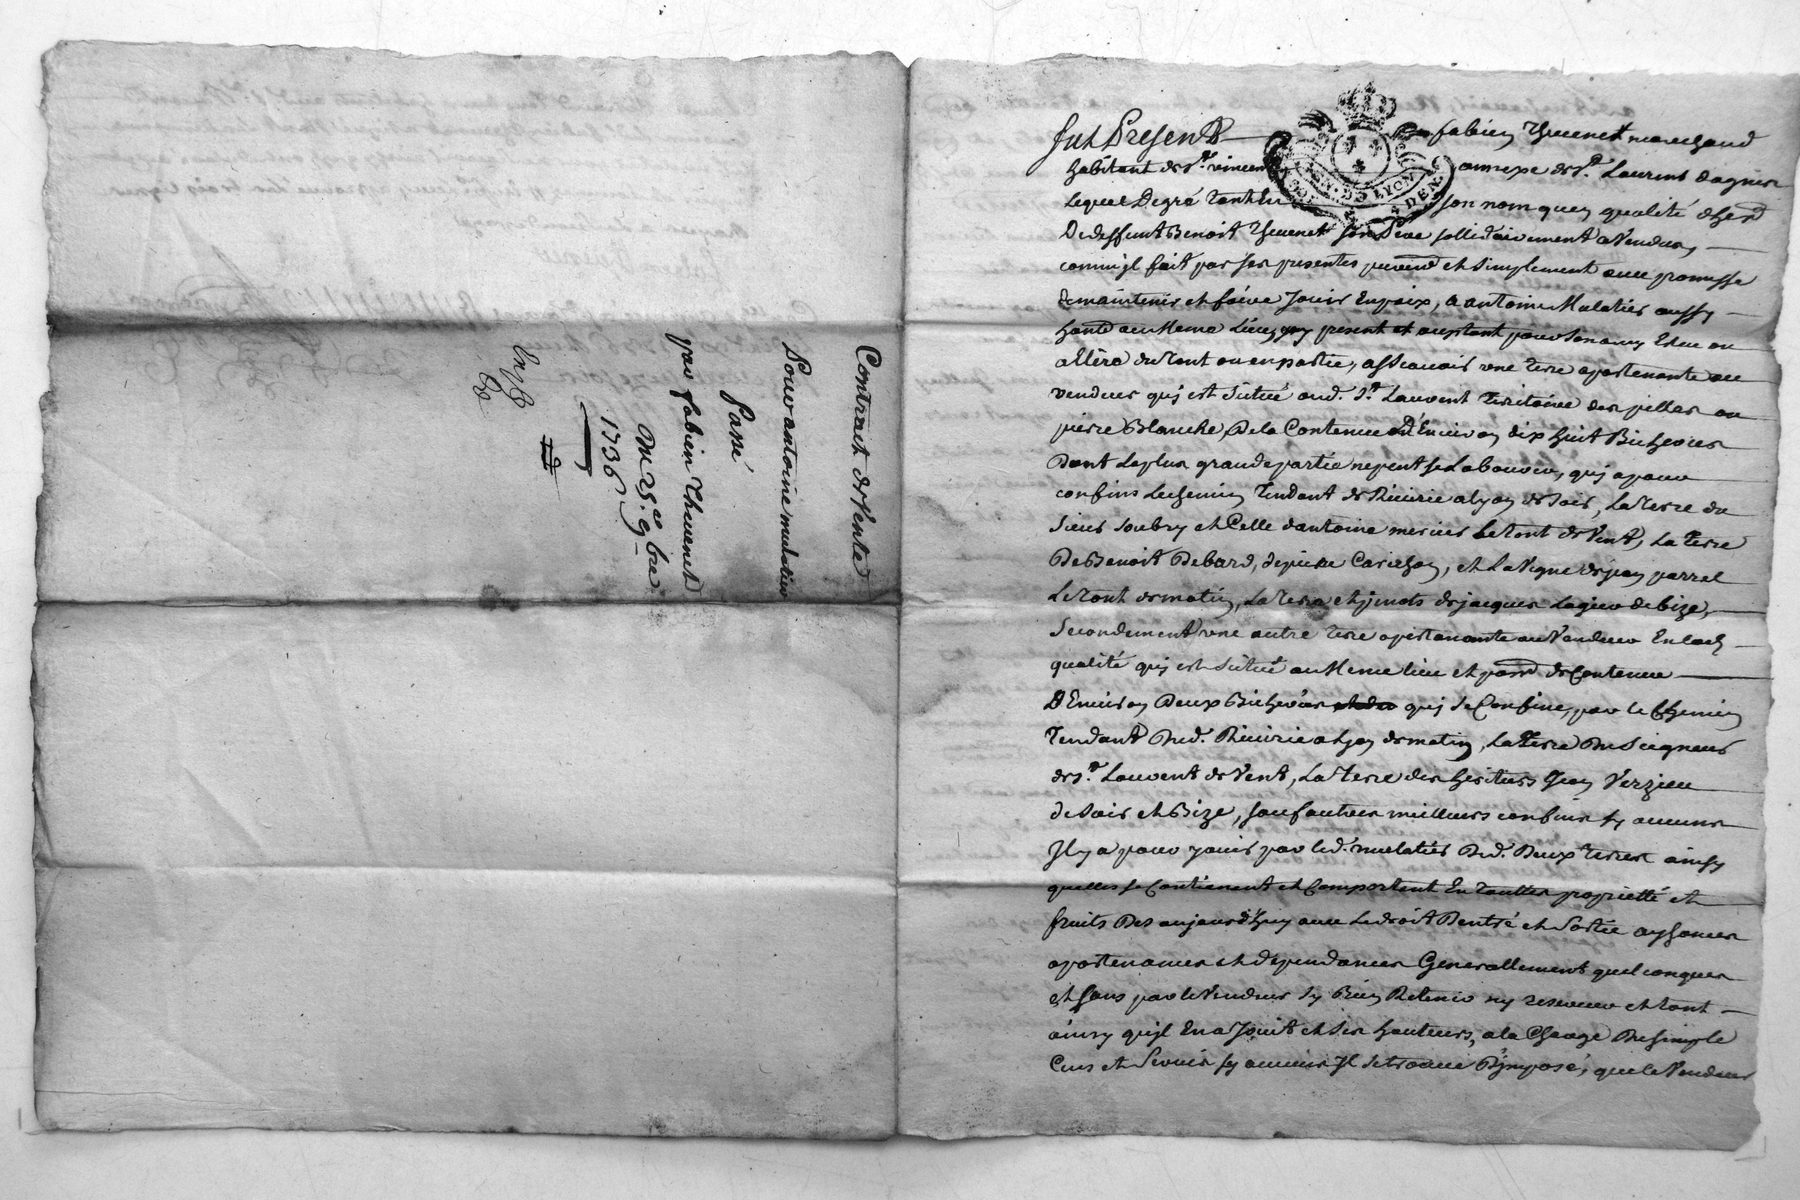 Contract de Vente
Pour antoine mulatier
Passé
par fabien Theuenet
Du 25.e 9.bre
1736
Fut Present fabien Theuenet marchand
habitant de st. vincent annexe de st. Laurent dagnier
Lequel De gré tant en son nom quen qualité dher
De deffunt Benoit Theuenet son Pere sollidairement a Vendu,
comm'jl fait par ses presentes purem et simplement auec promesse
de maintenir et faire Jouir En paix, a antoine Mulatier aussy
hant au Meme Lieu, jcy present et aceptant pour son amy Esleu ou
a Elire du tout ou en partie, assauoir une terre apartenante au
vendeur quj est Sittué aud. st. Laurent territoire des pilles ou
pierre Blanche, De la Contenue d'Enuiron dix huit Bicherées
Dont Le plus grande partie ne peut se Labourer, quj a pour
confins Le chemin Tendant de Riuirie a Lyon de soir, La terre du
sieur soubry et Celle dantoine mercier Le tout de Vent, La terre
De Benoit Debard, de pierre Carichon, et La Vigne de jean parret
Le tout de matin, La terre et de jacques Lagier de bize,
Secondement une autre terre apartenante au Vendeur En lad.
qualité quj est Sittué au Meme lieu et de Contenue
D'Enuiron Deux Bicherées quj se Confine, par le Chemin
Tendant Dud. Riuirie a Lyon de matin, La terre Du Seigneur
de st. Laurent de Vent, La terre des heritiers Jean Verzieu
de soir et Bize, sauf autres meilleurs confins sy aucuns
Jl y a pour jouir par led. mulatier Desd. Deux terres ainsy
quelles se Contienent et Comportent En touttes proprietté et
fruits Des aujourd'huy auec Le droit D'entré et Sortie aysances
apartenances et dependances Generallement quelconques
et sans par le Vendeur s'y Rien Retenir ny reseruer et tout
ainsy qujl En a Jouit et ses hauteurs, a la Charge Du simple
Cens et Seruis sy aucuns Jl se trouue D'jmposé, que le Vendeur